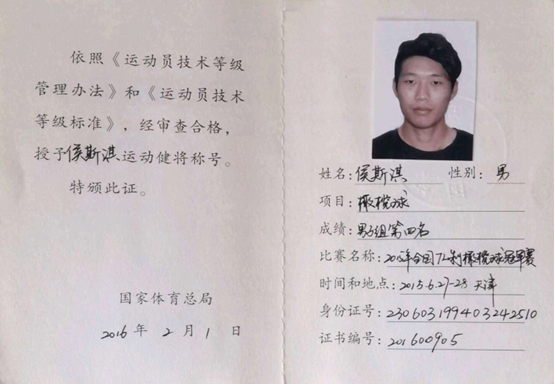 依照《运动员技术等级
管理办法》和《运动员技术
等级标准》，经审查合格，
授予侯斯淇运动健将称号。
特颁此证。
国家体育总局
2016年2月1日
姓名：侯斯淇 性别：男
项目：橄榄球
成绩：男子组第四名
比赛名称：2015年全国7人制橄榄球冠军赛
时间和地点：2015.6.27-28 天津
身份证号：230603199403242510
证书编号：201600905